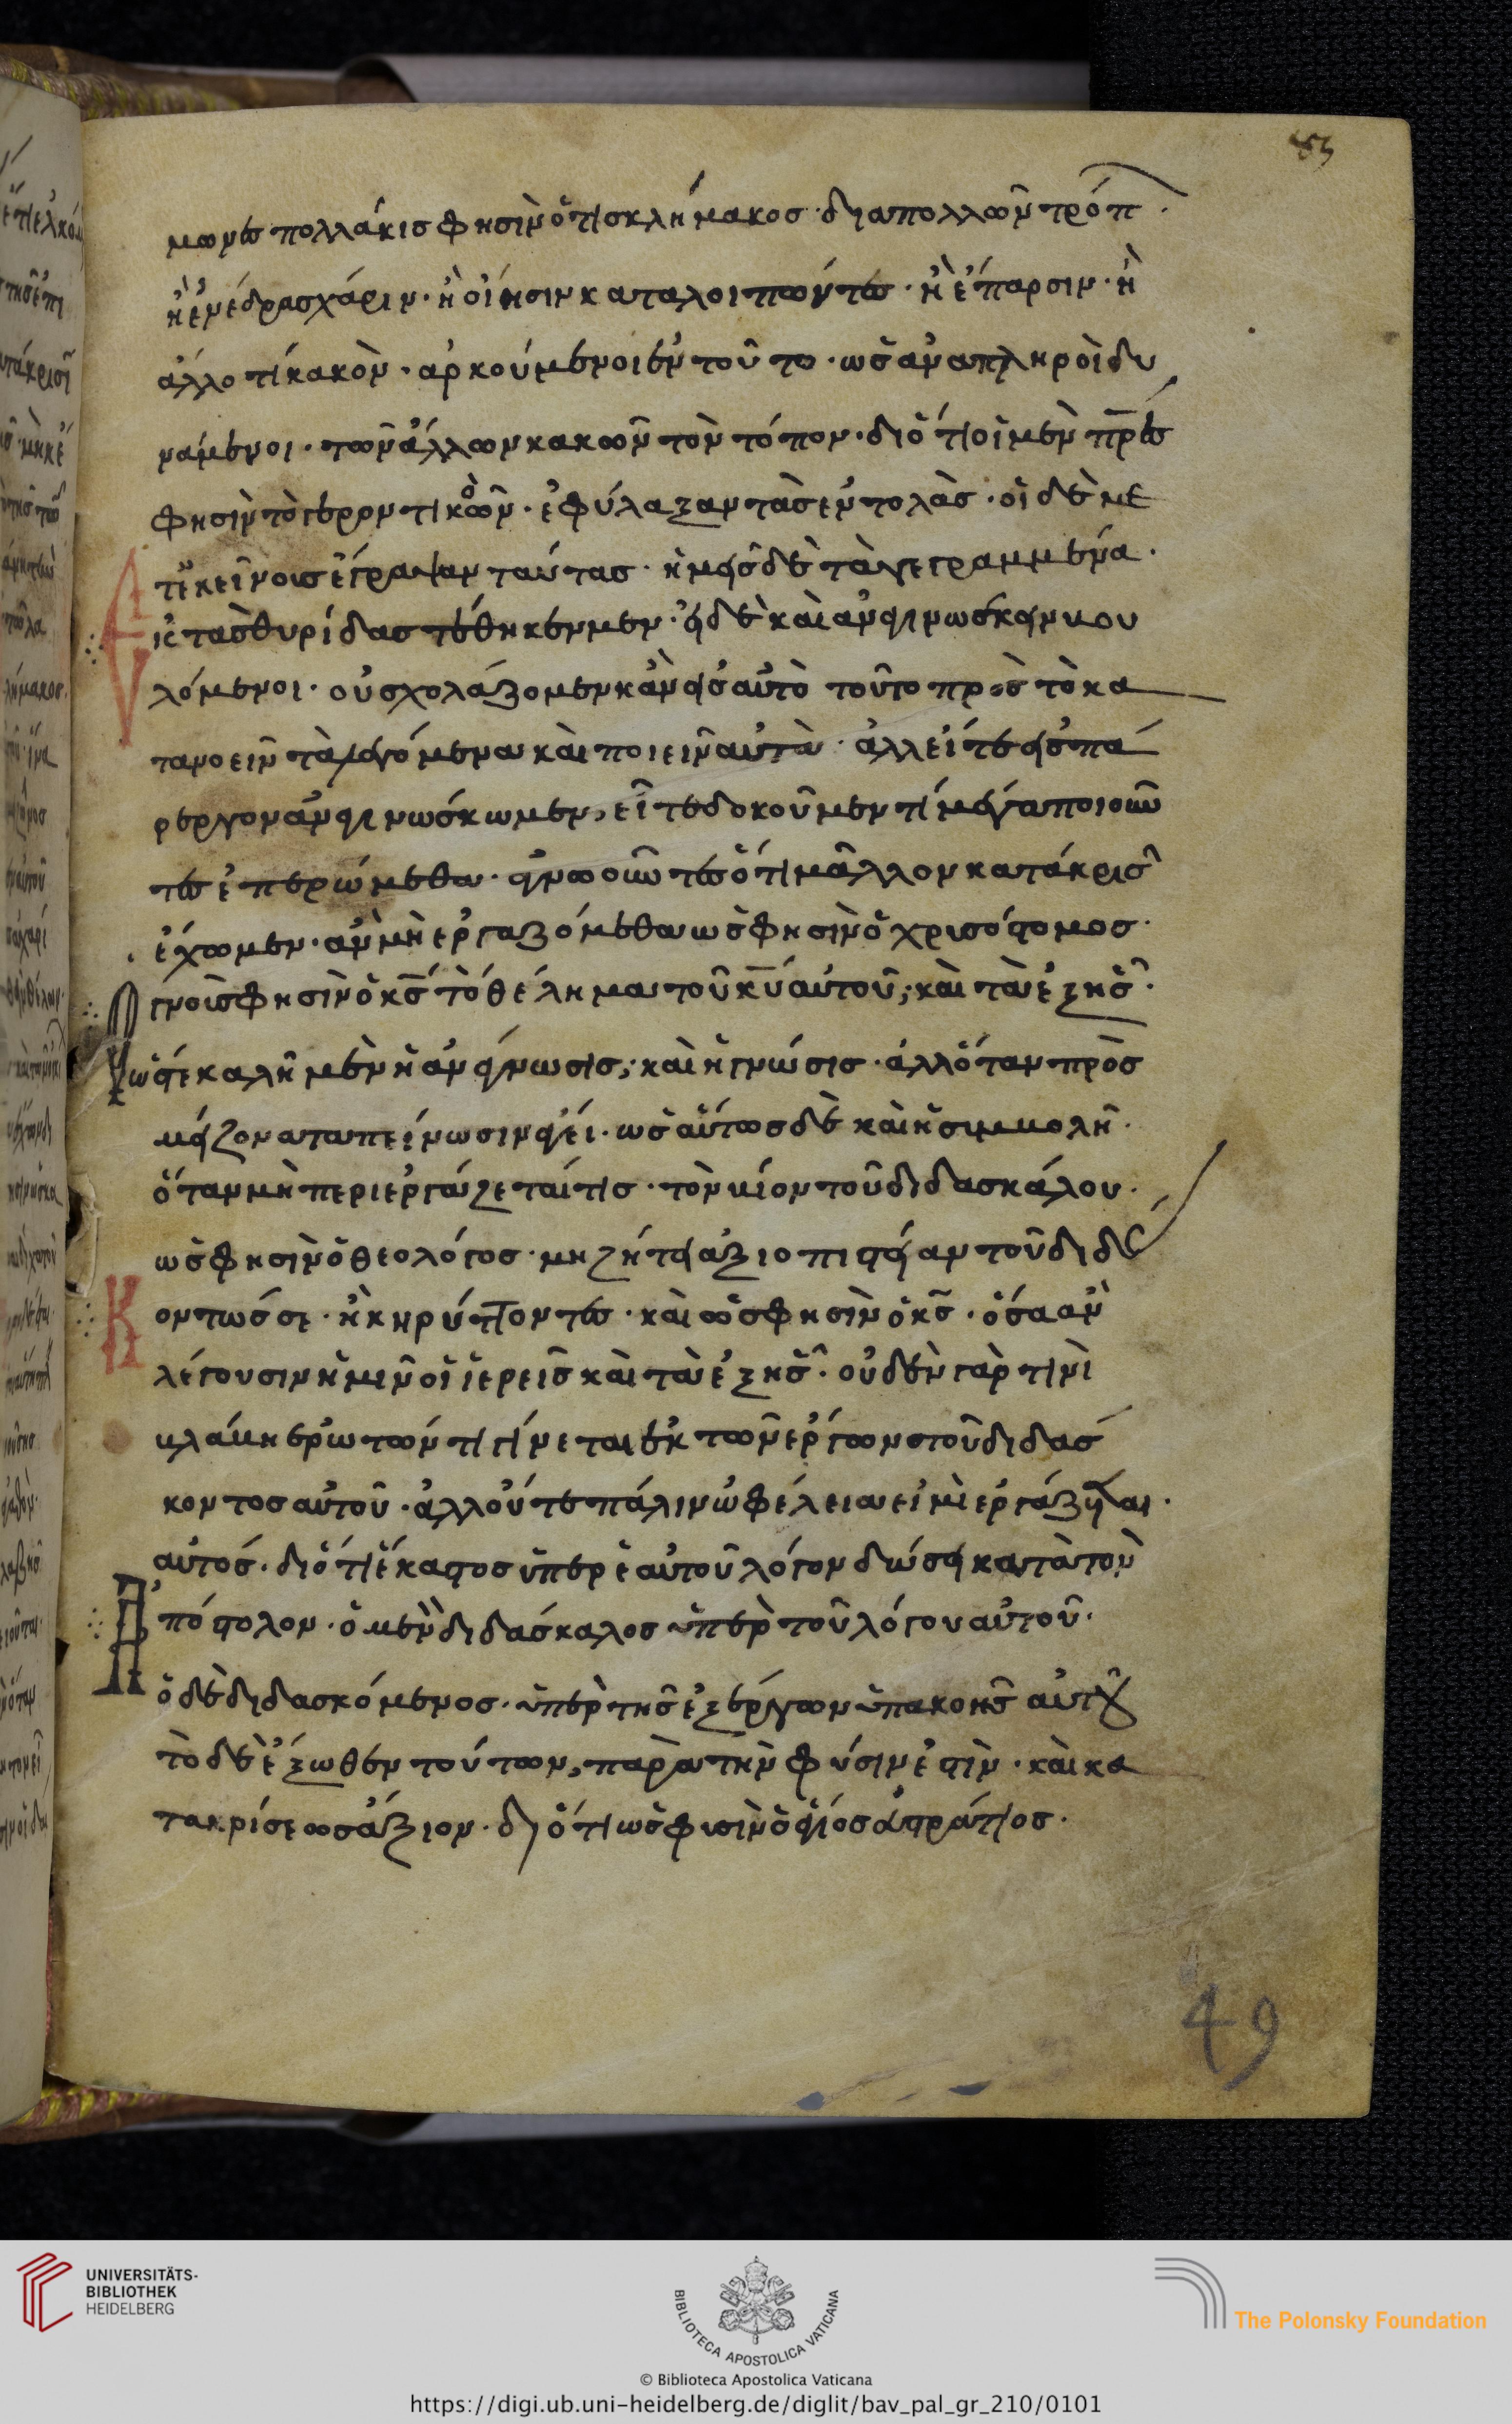 83
μωνες πολλάκις φησὶν ὅτι ὁ κλήμακος · διὰ πολλῶν τρόπ
ἢ ἐνέδρας χάριν · ἢ οἴησιν καταλοιπόντες · ἢ ἔπαρσιν · ἢ
ἄλλο τί κακὸν · ἀρκούμενοι ἐν τούτο · ὡς ἀναπληροῖ δυ
νάμενοι · τῶν ἄλλων κακῶν τὸν τόπον · διότι οἱ μὲν πρες
φησὶν τὸ γεροντικὸν · ἐφύλαξαν τὰς ἐντολὰς · οἱ δὲ με
τ' ἐκεῖνοις ἔγραψαν ταύτας · ἡμεῖς δὲ τὰ γεγραμμένα ·
εἰς τὰς θυρίδας τέθηκενμεν · εἰ δὲ καὶ ἀναγινώσκειν βου
λόμενοι · οὐ σχολάζομεν κἂν εἰς αὐτὸ τοῦτο πρὸς τὸ κα
τανοεῖν τὰ λεγόμενα καὶ ποιεῖν αὐτὰ · ἀλλ' εἴτε εἰς πά
ρεργον ἀναγινώσκωμεν, εἴτε δοκοῦμεν τί μέγα ποιοῦν
τες ἐπερώμεθα · ἀγνοοῦντες ὅτι μᾶλλον κατάκρισ
ἔχωμεν · ἂν μὴ ἐργαζόμεθα ὡς φησὶν ὁ χρισόστομος ·
Ὁ γνοὺς φησὶν ὁ κς τὸ θέλημα τοῦ κυ αὐτοῦ, καὶ τὰ ἑξῆς ·
Ὥστε καλὴ μὲν ἡ ἀνάγνωσις, καὶ ἡ γνώσις · ἀλλ' ὅταν πρὸς
μείζονα ταπείνωσιν ἄγει · ὡς αὔτως δὲ καὶ ἡ σιμβολὴ ·
ὅταν μὴ περιεργάζεταί τις · τὸν βίον τοῦ διδασκάλου ·
ὡς φησὶν ὁ θεολόγος · μη ζήτει ἀξιοπιστείαν τοῦ διδάσκ
οντως σε · ἢ κηρύττοντες · καὶ ὡς φησὶν ὁ κς · ὅσα ἂν
λέγουσιν ἡμῖν οἱ ἱερεῖς καὶ τὰ ἑξῆς · οὐδὲν γὰρ τινὶ
βλάβη ἐρωτῶντι γίνεται ἐκ τῶν ἔργων τοῦ διδάσ
κοντος αὐτοῦ · ἀλλ' οὔτε πάλιν ὠφέλεια εἰ μὶ ἐργάζηται ·
αὐτός · διότι ἕκαστος ὑπὲρ ἑαυτοῦ λόγον δώσει κατὰ τὸν
Ἀπόστολον · ὁ μὲν διδάσκαλος ὑπὲρ τοῦ λόγου αὐτοῦ ·
ὁ δὲ διδασκόμενος · ὑπὲρ τῆς ἐξ ἔργων ὑπακοῆς αὐτοῦ
τὸ δὲ ἔξωθεν τούτων, παρὰ τὴν φύσιν ἐστὶν · καὶ κα
τακρίσεως ἄξιον · διότι ὡς φισὶν ὁ ἅγιος εὐστράτιος ·
49
UNIVERSITÄTS-
BIBLIOTHEK
HEIDELBERG
BIBLIOTECA APOSTOLICA VATICANA
The Polonsky Foundation
© Biblioteca Apostolica Vaticana
https://digi.ub.uni-heidelberg.de/diglit/bav_pal_gr_210/0101